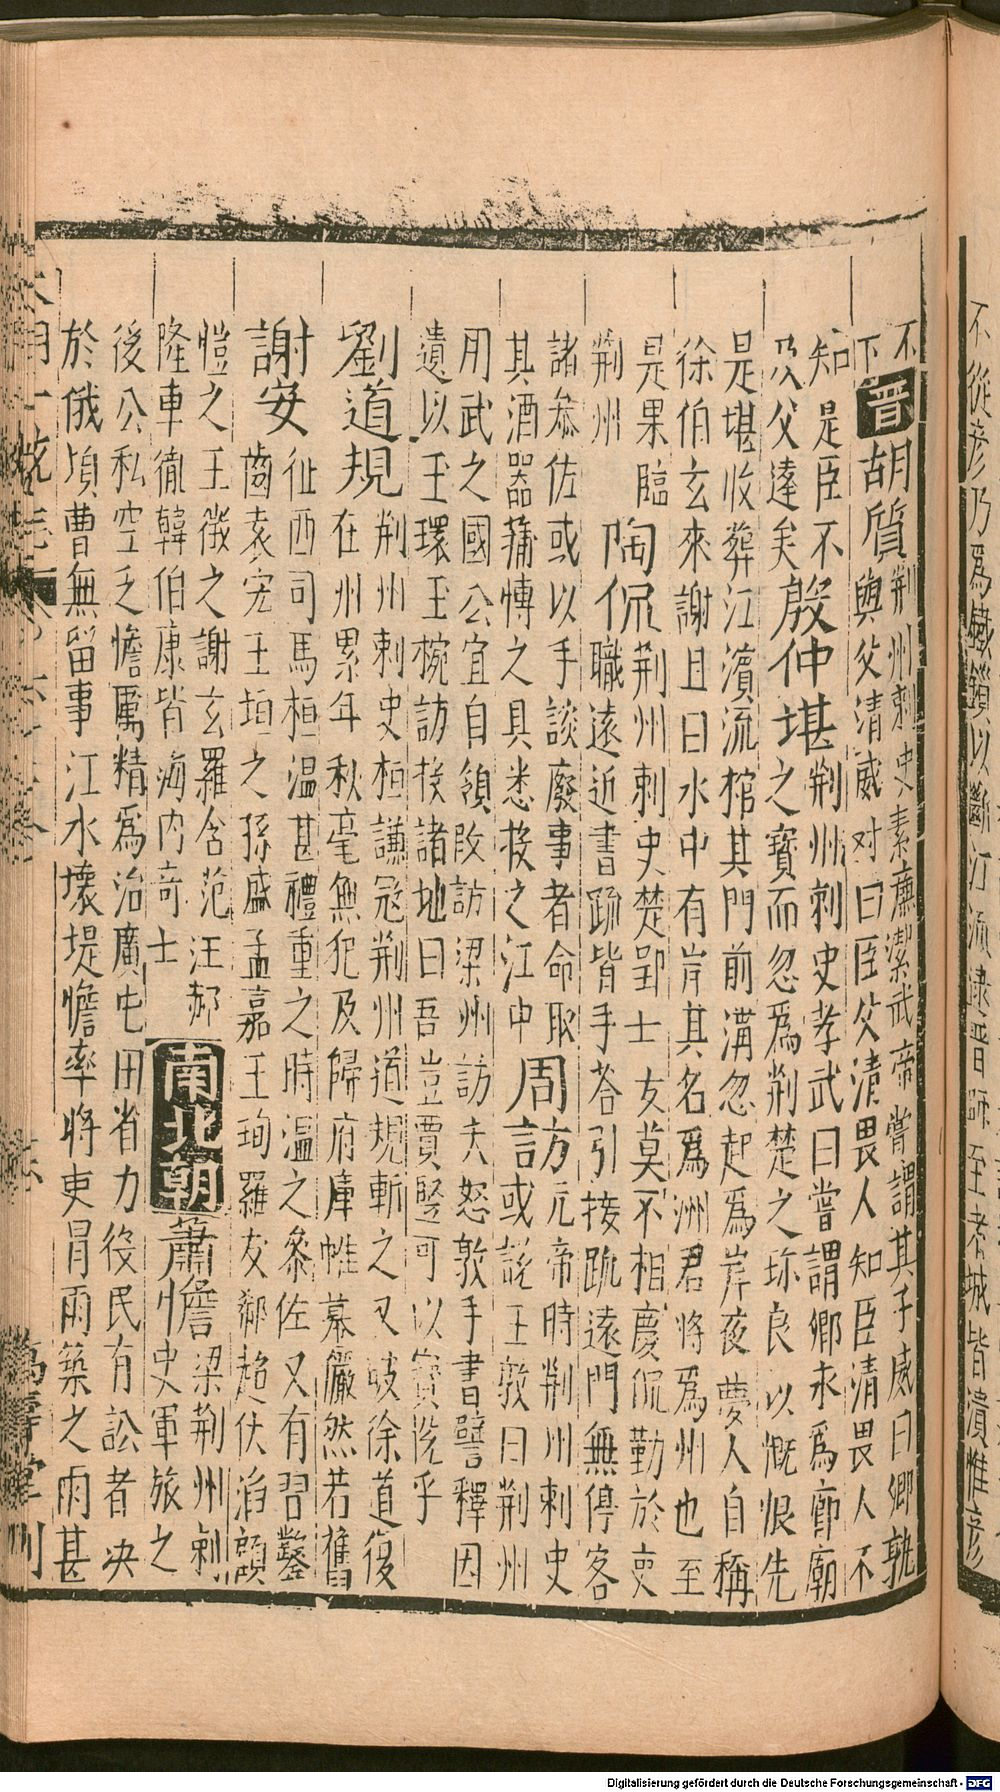 不從彥乃爲鐵鎖以斷江 至 城皆潰惟彥
不
下
晉
胡質
荆州刺史素廉潔武帝嘗謂其子威曰卿孰
與父清威对曰臣父清畏人知臣清畏人不
知是臣不
及父逹矣
殷仲堪
荆州刺史孝武曰嘗謂卿永爲廊廟
之寳而忽爲荆楚之珎良以慨恨先
是堪收葬江濱流棺其門前溝忽起爲岸夜夢人自稱
徐伯玄來謝且曰水中有岸其名爲洲君將爲州也至
是果臨
荆州
陶侃
荆州刺史楚郢士女莫不相慶侃勤於吏
職遠近書疏皆手荅引接踈遠門無停客
諸叅佐或以手談廢事者命取
其酒器蒱愽之具悉投之江中
周訪
元帝時荆州刺史
或說王敦曰荆州
用武之國公宜自領敦訪梁州訪大怒敦手書譬釋因
遺以玉環玉椀訪投諸地曰吾豈賈竪可以寳悅乎
劉道規
荆州刺史桓謙冦荆州道規斬之又敗徐道復
在州累年秋毫無犯及歸府庫帷幕儼然若舊
謝安
征西司馬桓温甚禮重之時温之叅佐又有習鑿
齒袁宏王垣之孫盛孟嘉王珣羅友郗超伏滔顧
愷之王徵之謝玄羅含范汪郝
隆車胤韓伯康皆海内竒士
南北朝
蕭憺
梁荆州刺
史軍旅之
後公私空乏憺厲精爲治廣屯田省力役民有訟者决
於俄頃曹無留事江水壞堤憺率將吏冐雨築之雨甚
大明一統志卷 萬壽堂刊
Digitalisierung gefördert durch die Deutsche Forschungsgemeinschaft - DFG